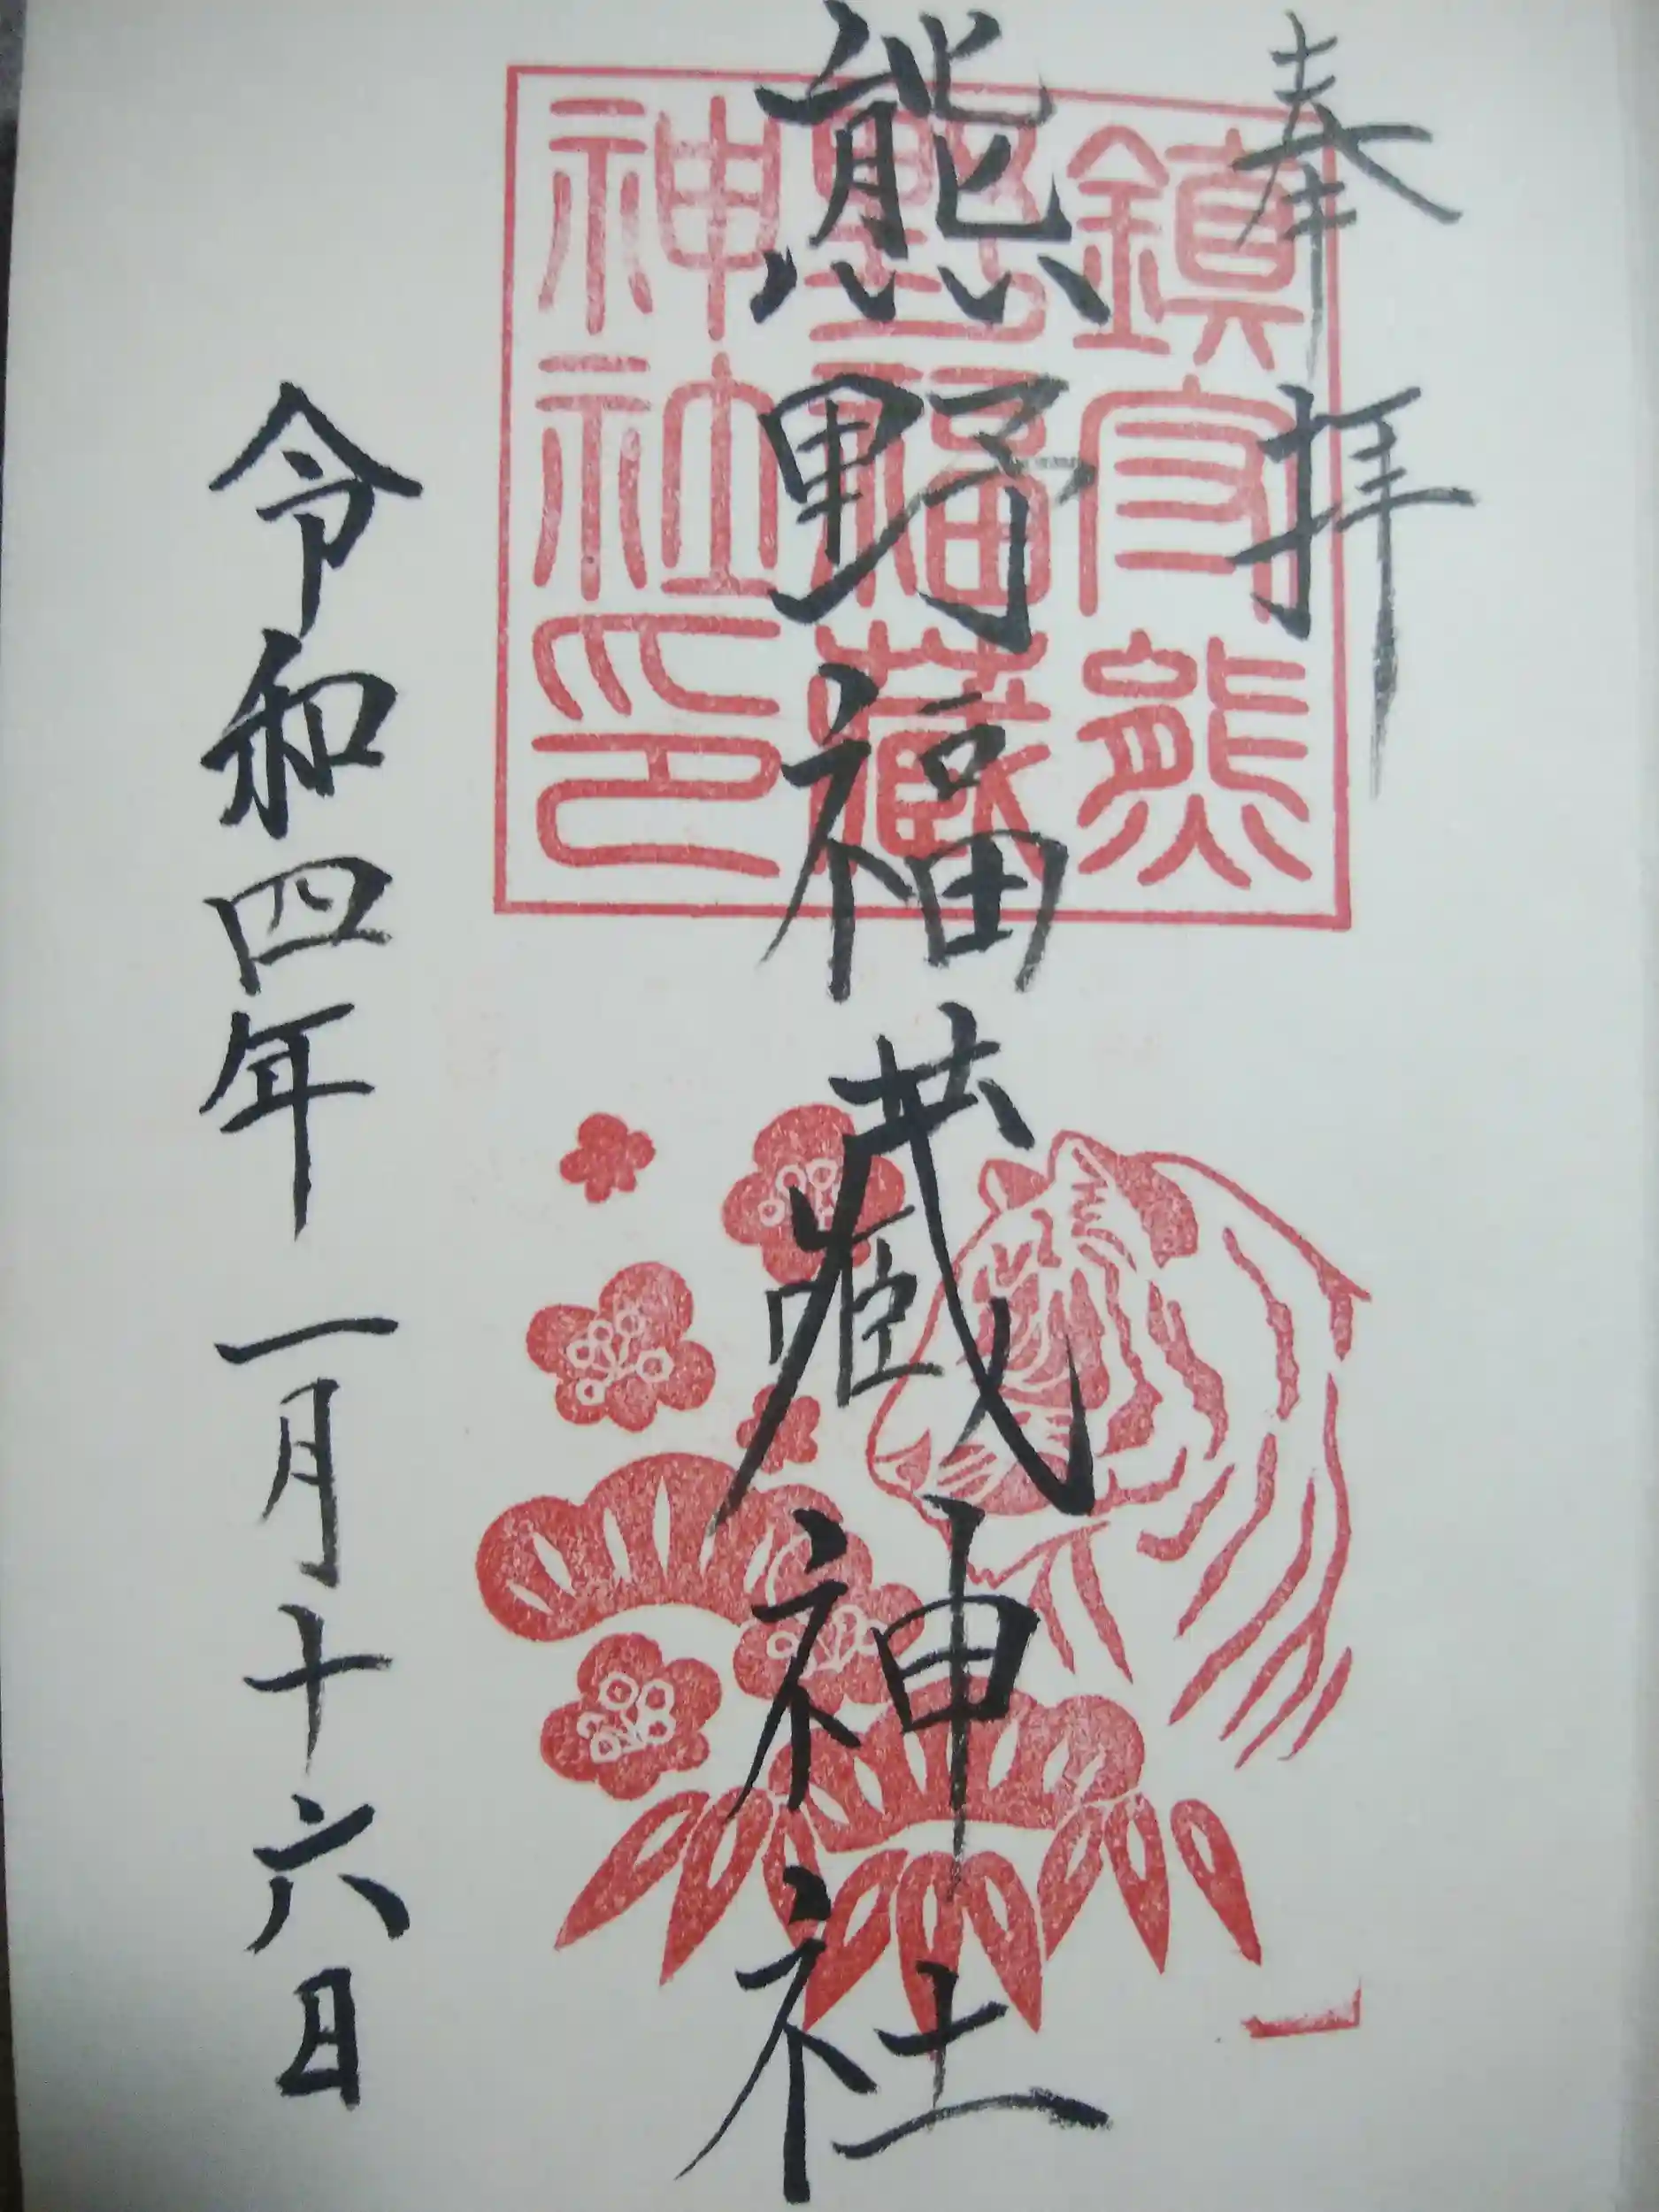 奉拝
熊野福藏神社
令和四年一月十六日
鎮守熊
野福藏
神社印